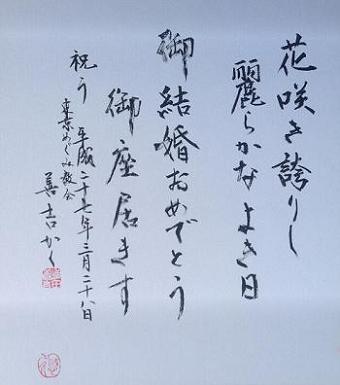 花咲き誇りし
麗らかなよき日
御結婚おめでとう
御座居ます
祝う 平成二十七年三月二十八日
東京めぐみ教会
善吉かく